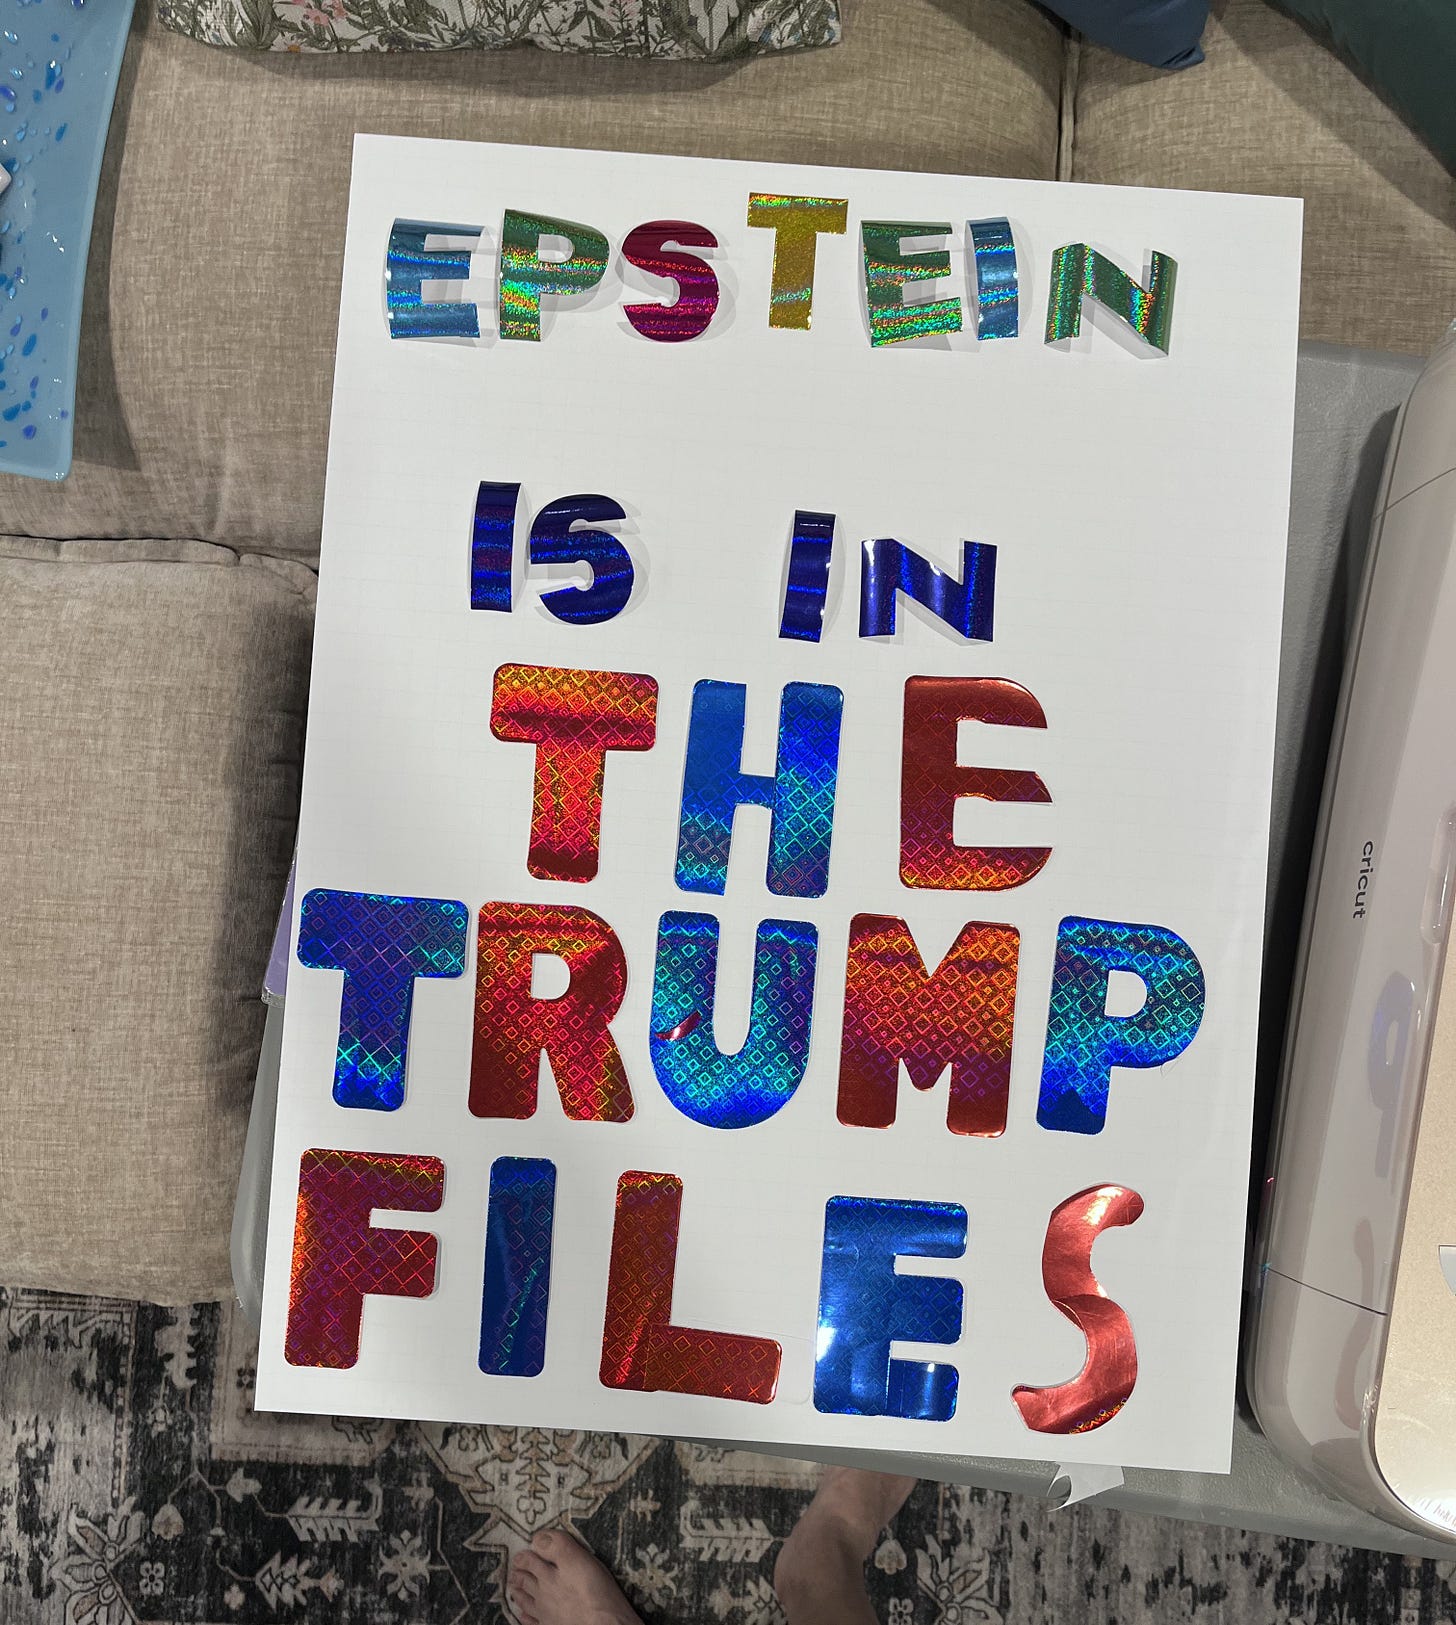 EPSTEIN
IS IN
THE
TRUMP
FILES
cricut